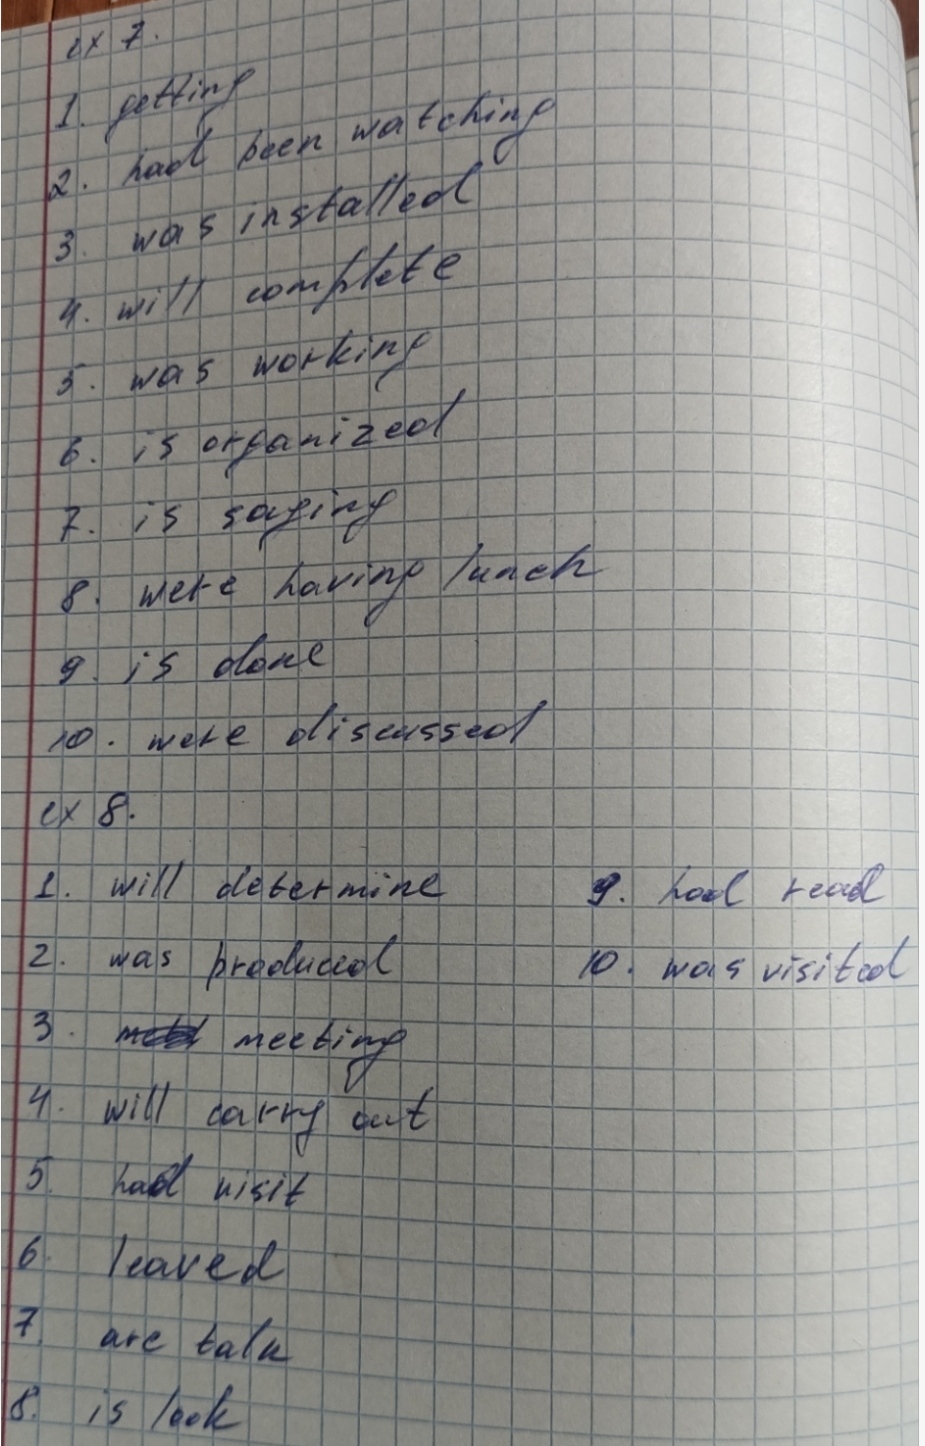 ex 7.
1. getting
2. had been watching
3. was installed
4. will complete
5. was working
6. is organized
7. is saying
8. were having lunch
9. is done
10. were discussed
ex 8.
1. will determine
2. was produced
3. meeting
4. will carry out
5. had visit
6. leaved
7. are talk
8. is look
9. had read
10. was visited